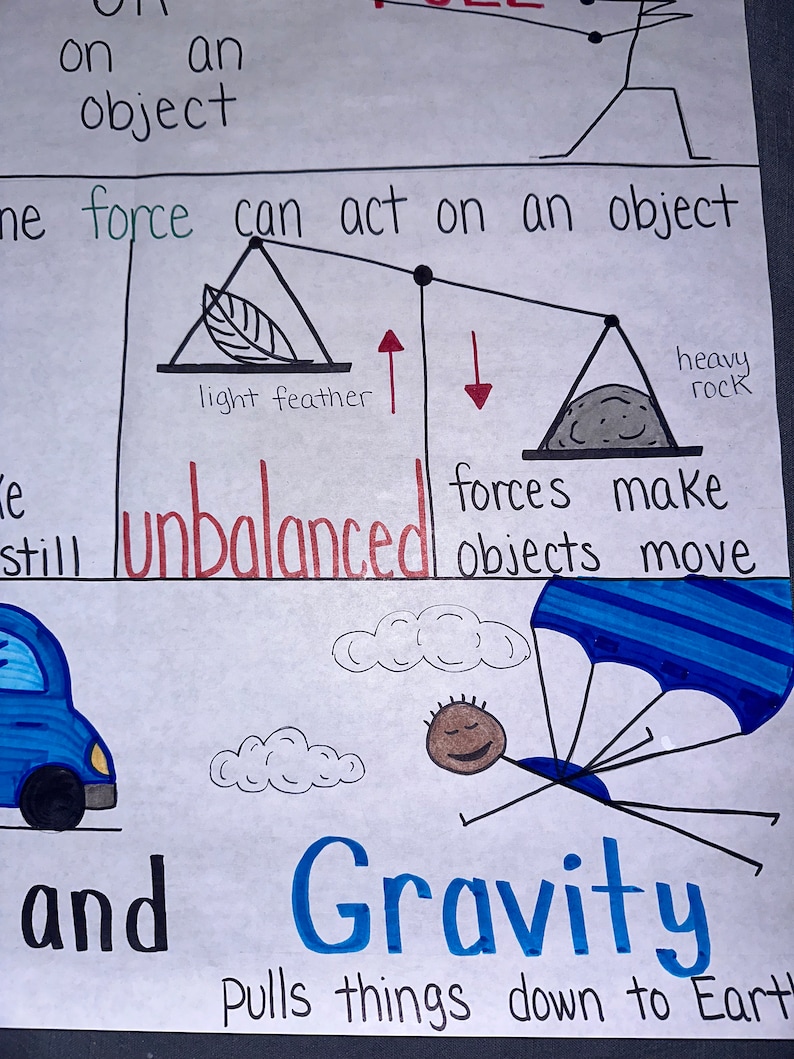 on an
object
PULL
force can act on an object
light feather
heavy
rock
still
unbalanced
forces make
objects move
and Gravity
pulls things down to Eart